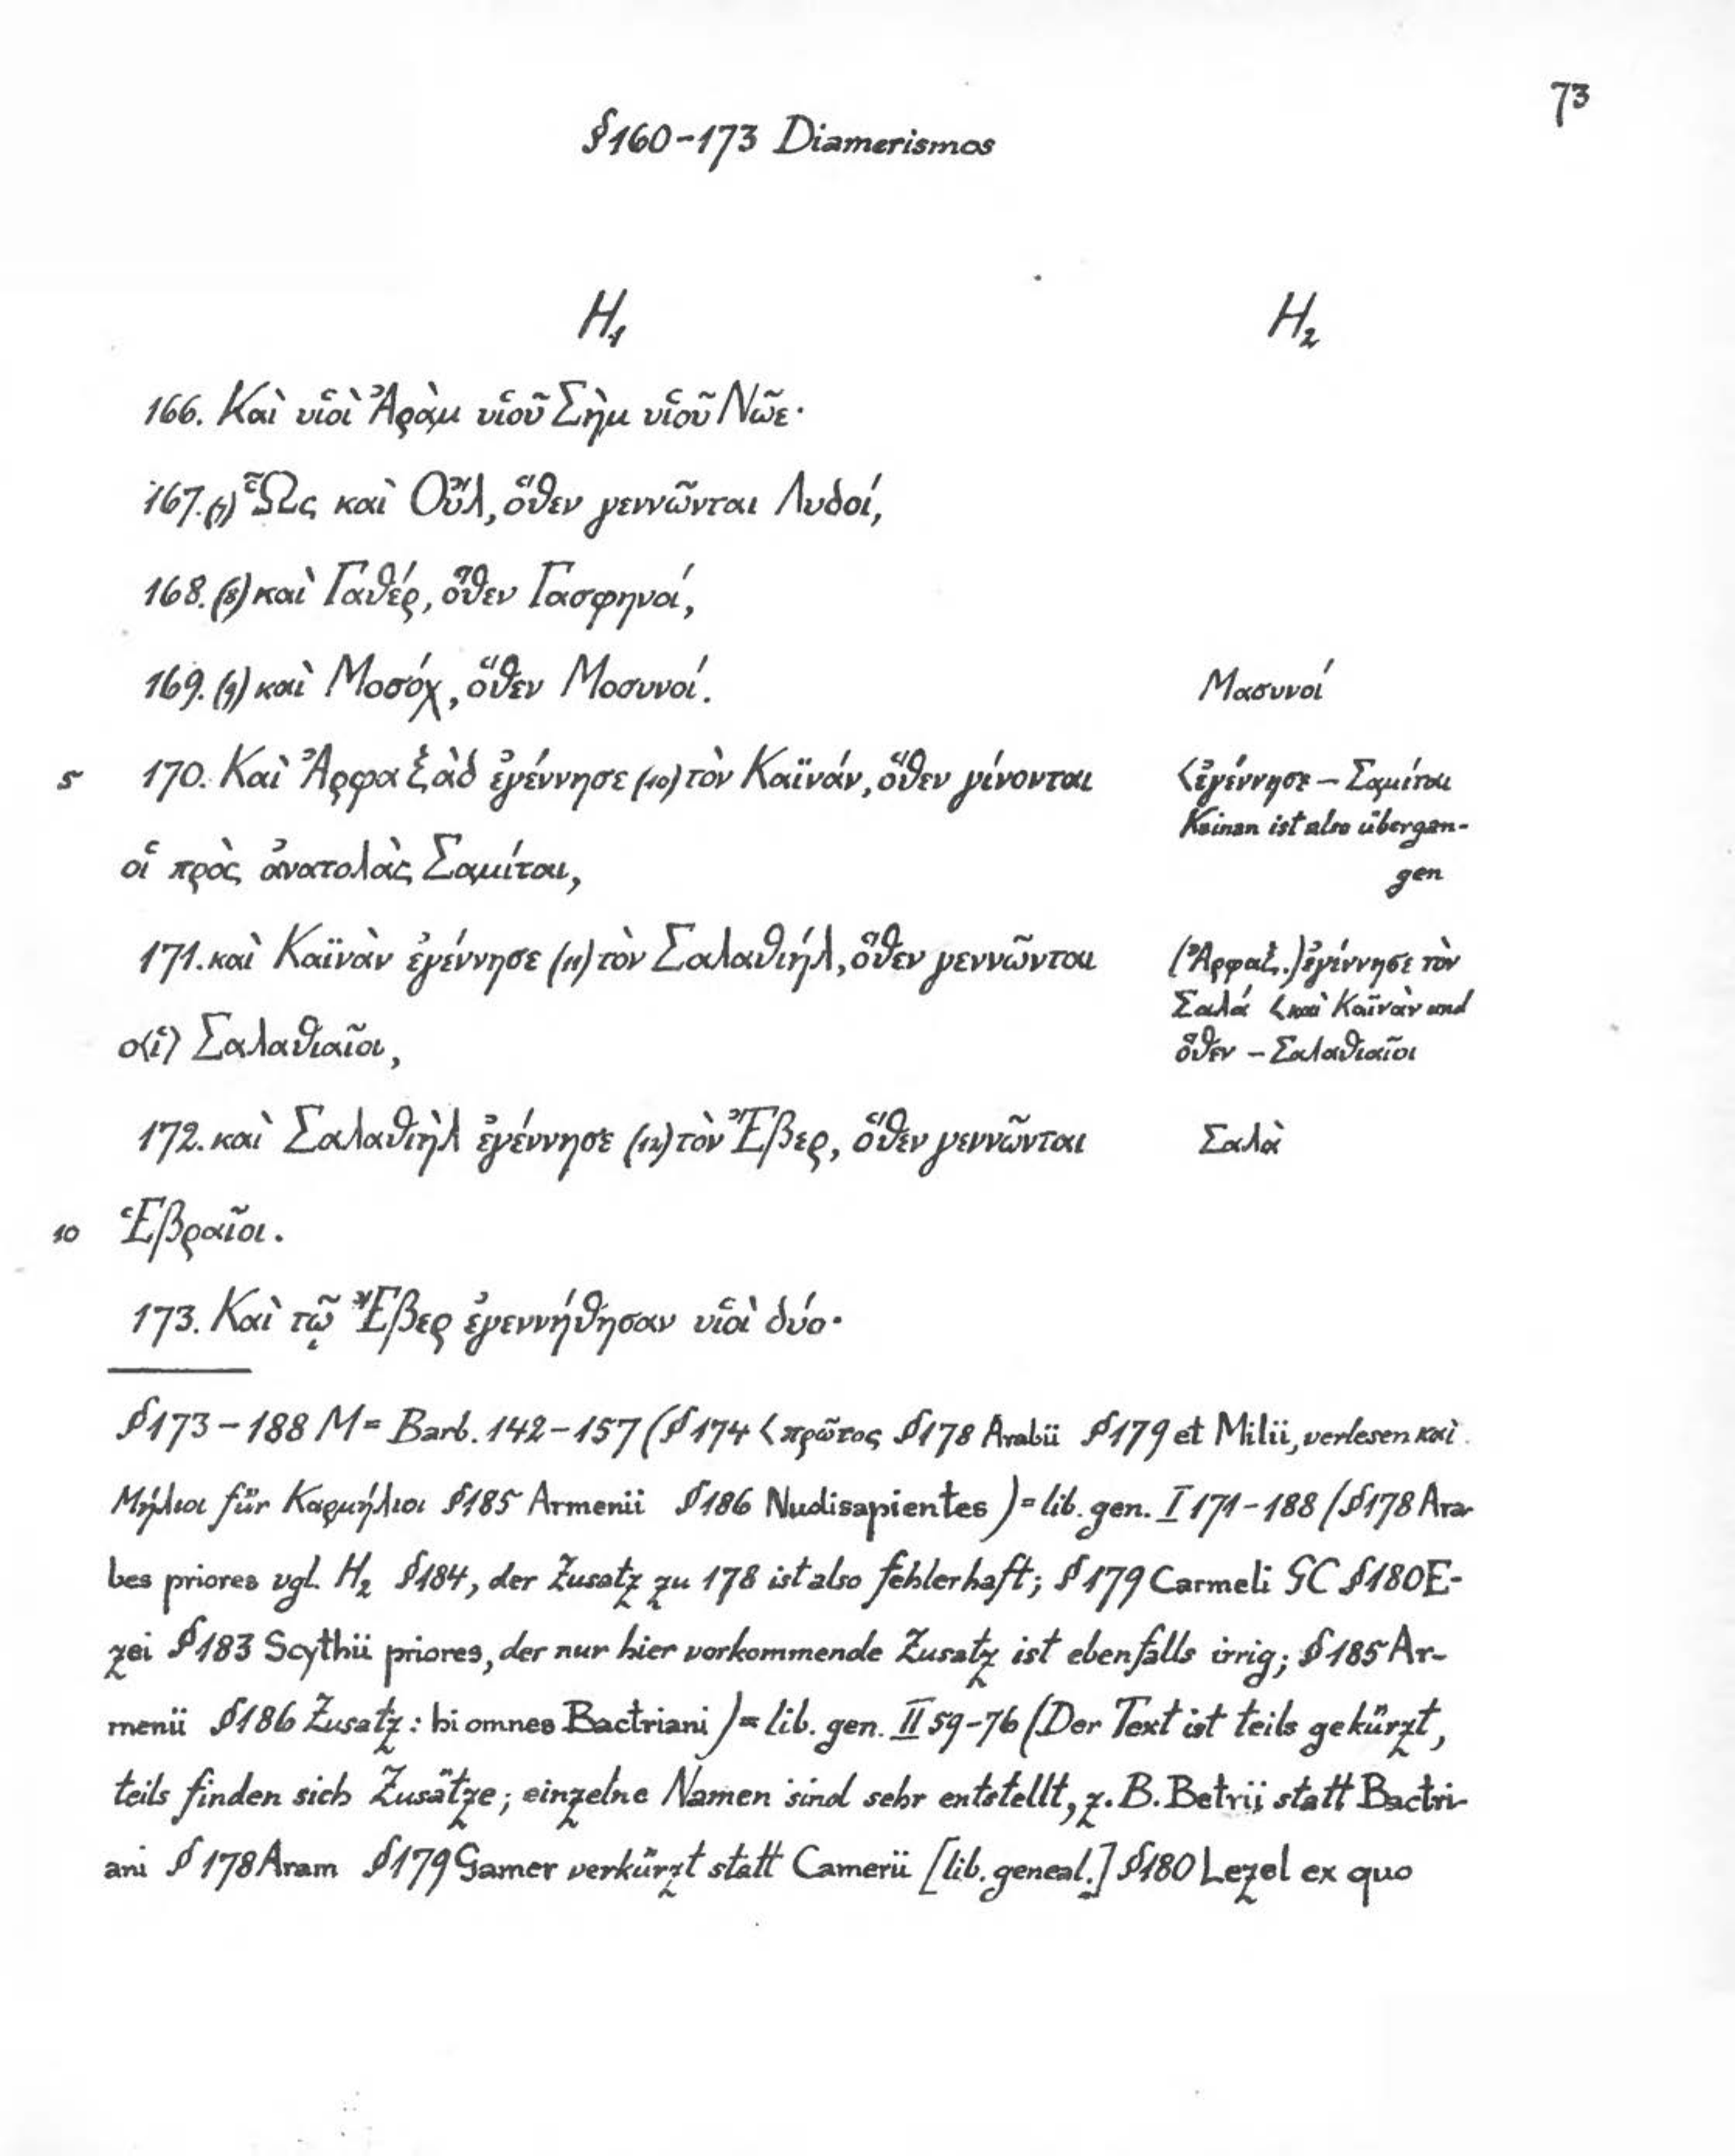 73
§160-173 Diamerismos
H₁ H₂
166. Καὶ υἱοὶ Ἀρὰμ υἱοῦ Σὴμ υἱοῦ Νῶε·
167. (7) Ὧς καὶ Οὔλ, ὅθεν γεννῶνται Λυδοί,
168. (8) καὶ Γαθέρ, ὅθεν Γασφηνοί,
169. (9) καὶ Μοσόχ, ὅθεν Μοσυνοί. Μασυνοί
5 170. Καὶ Ἀρφαξὰδ ἐγέννησε (10) τὸν Καϊνάν, ὅθεν γίνονται <ἐγέννησε – Σαμίται
Keinan ist also übergan-
οἱ πρὸς ἀνατολὰς Σαμίται, gen
171. καὶ Καϊνὰν ἐγέννησε (11) τὸν Σαλαθιήλ, ὅθεν γεννῶνται (Ἀρφαξ.) ἐγέννησε τὸν
Σαλά <καὶ Καϊνὰν und
ο<ἱ> Σαλαθιαῖοι, ὅθεν – Σαλαθιαῖοι
172. καὶ Σαλαθιὴλ ἐγέννησε (12) τὸν Ἔβερ, ὅθεν γεννῶνται Σαλὰ
10 Ἑβραῖοι.
173. Καὶ τῷ Ἔβερ ἐγεννήθησαν υἱοὶ δύο·
§173-188 M = Barb. 142-157 (§174 < πρῶτος §178 Arabii §179 et Milii, verlesen καὶ
Μήλιοι für Καρμήλιοι §185 Armenii §186 Nudisapientes) = lib. gen. I 171-188 (§178 Ara-
bes priores vgl. H₂ §184, der Zusatz zu 178 ist also fehlerhaft; §179 Carmeli GC §180 E-
zei §183 Scythii priores, der nur hier vorkommende Zusatz ist ebenfalls irrig; §185 Ar-
menii §186 Zusatz: hi omnes Bactriani) = lib. gen. II 59-76 (Der Text ist teils gekürzt,
teils finden sich Zusätze; einzelne Namen sind sehr entstellt, z. B. Betrii statt Bactri-
ani §178 Aram §179 Gamer verkürzt statt Camerii [lib. geneal.] §180 Lezel ex quo